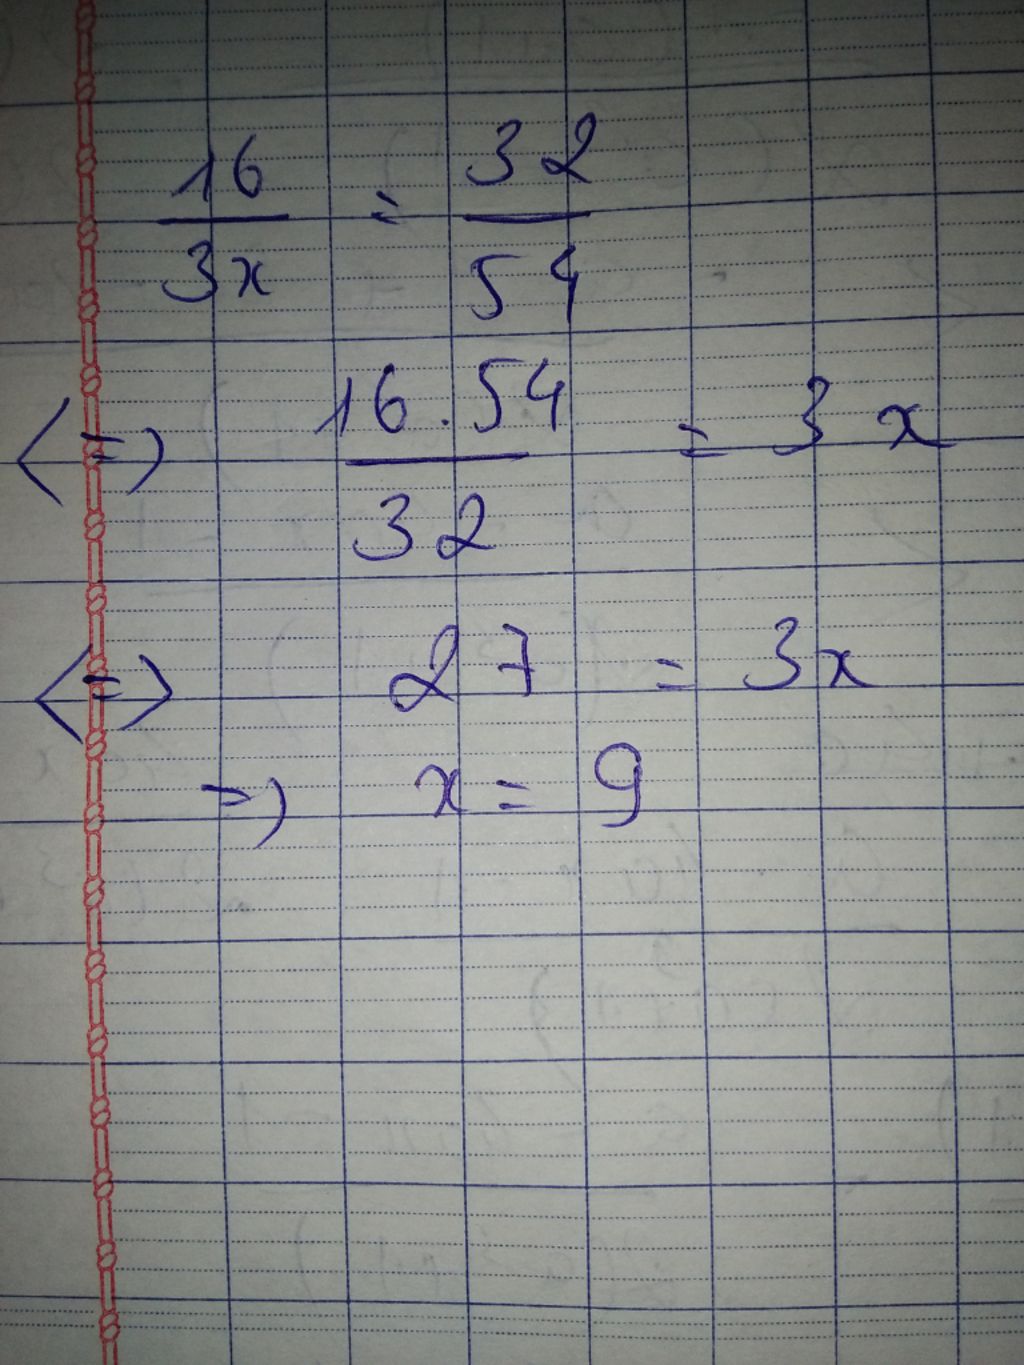 16/3x = 32/54
<=> 16.54/32 = 3x
<=> 27 = 3x
=> x = 9